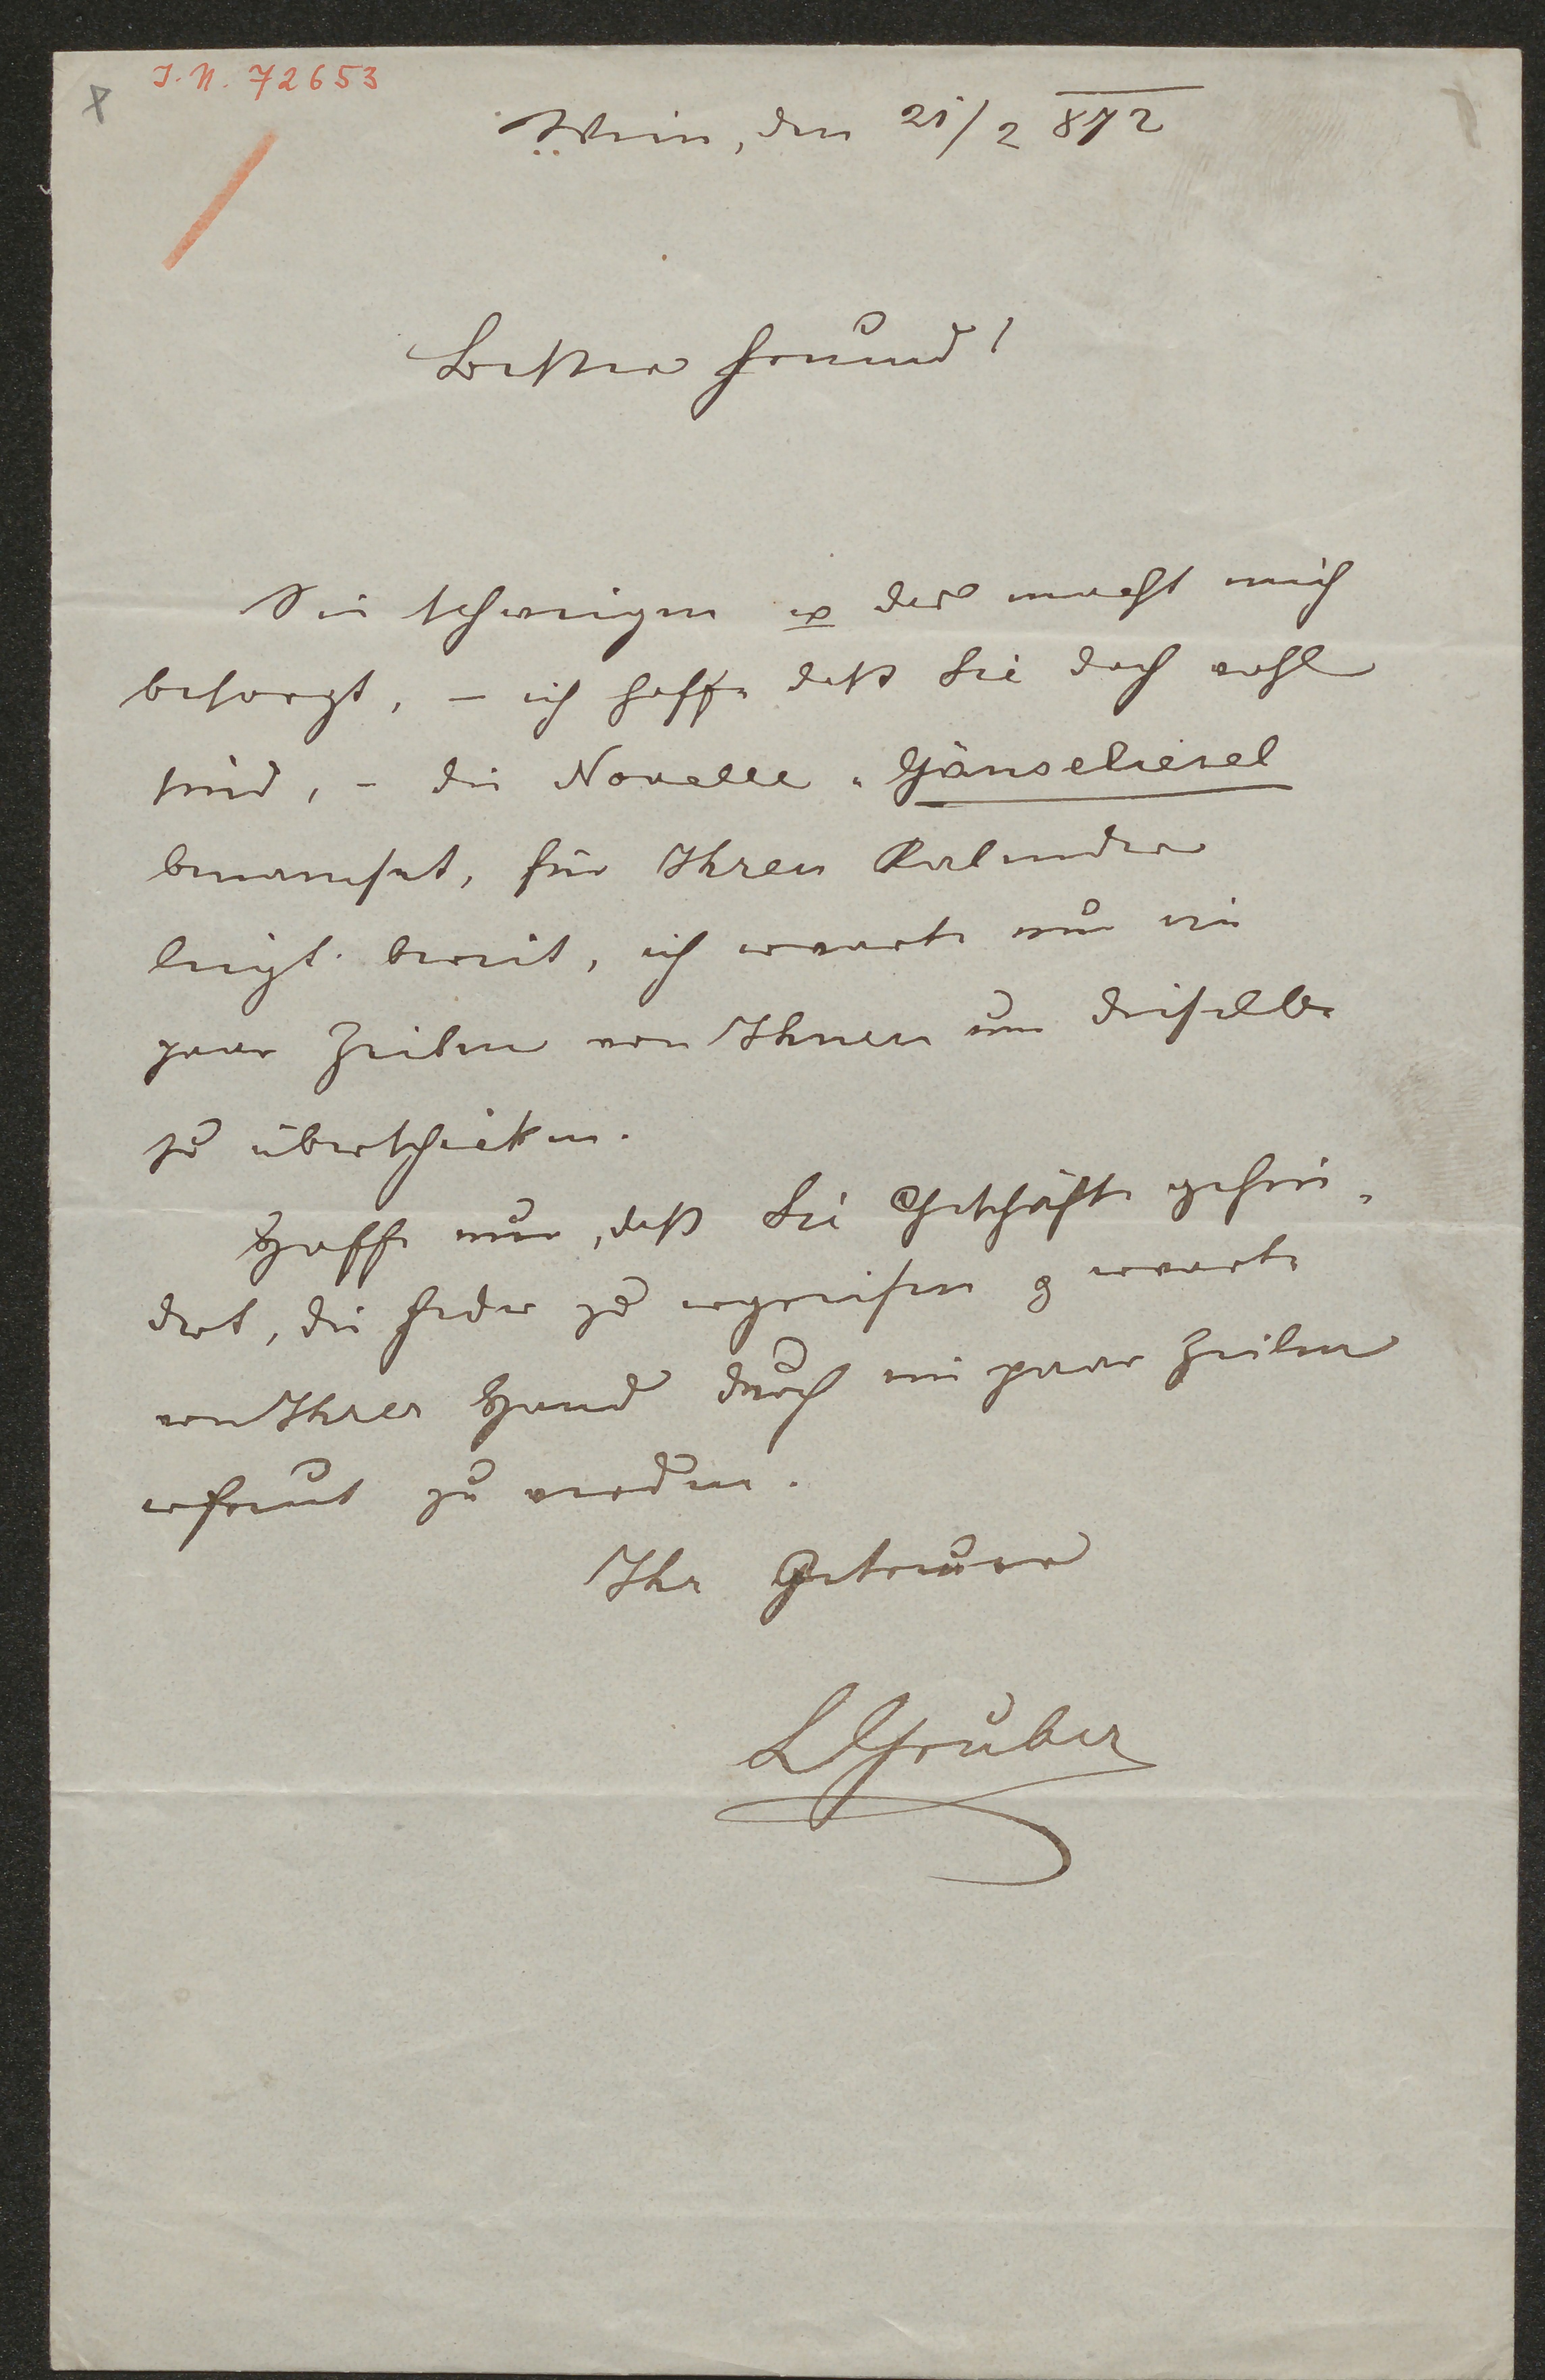 J. N. 72653
Wien, den 21/2 872
Bester Freund!
Sie schweigen & das macht mich
besorgt, – ich hoffe daß Sie doch wohl
sind, – die Novelle „Gänseliesel
benamset, für Ihren Kalender
liegt bereit, ich erwarte nur ein
paar Zeilen von Ihnen um dieselbe
zu überschicken.
Hoffe nur, daß Sie Geschäfte gehin-
dert, die Feder zu ergreifen & erwarte
von Ihrer Hand durch ein paar Zeilen
erfreut zu werden.
Ihr Getreuer
LGruber